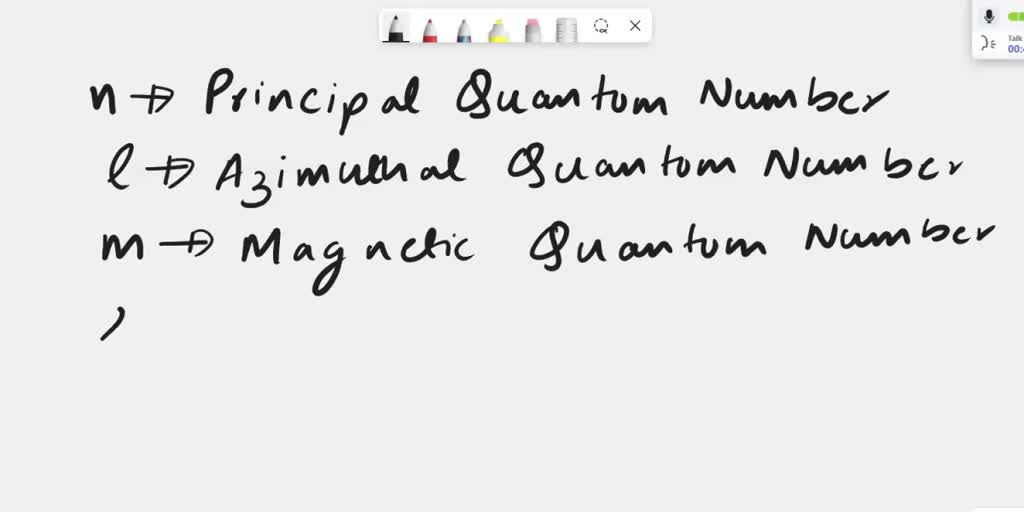 Talk
00:
n → Principal Quantum Number
l → Azimuthal Quantum Number
m → Magnetic Quantum Number